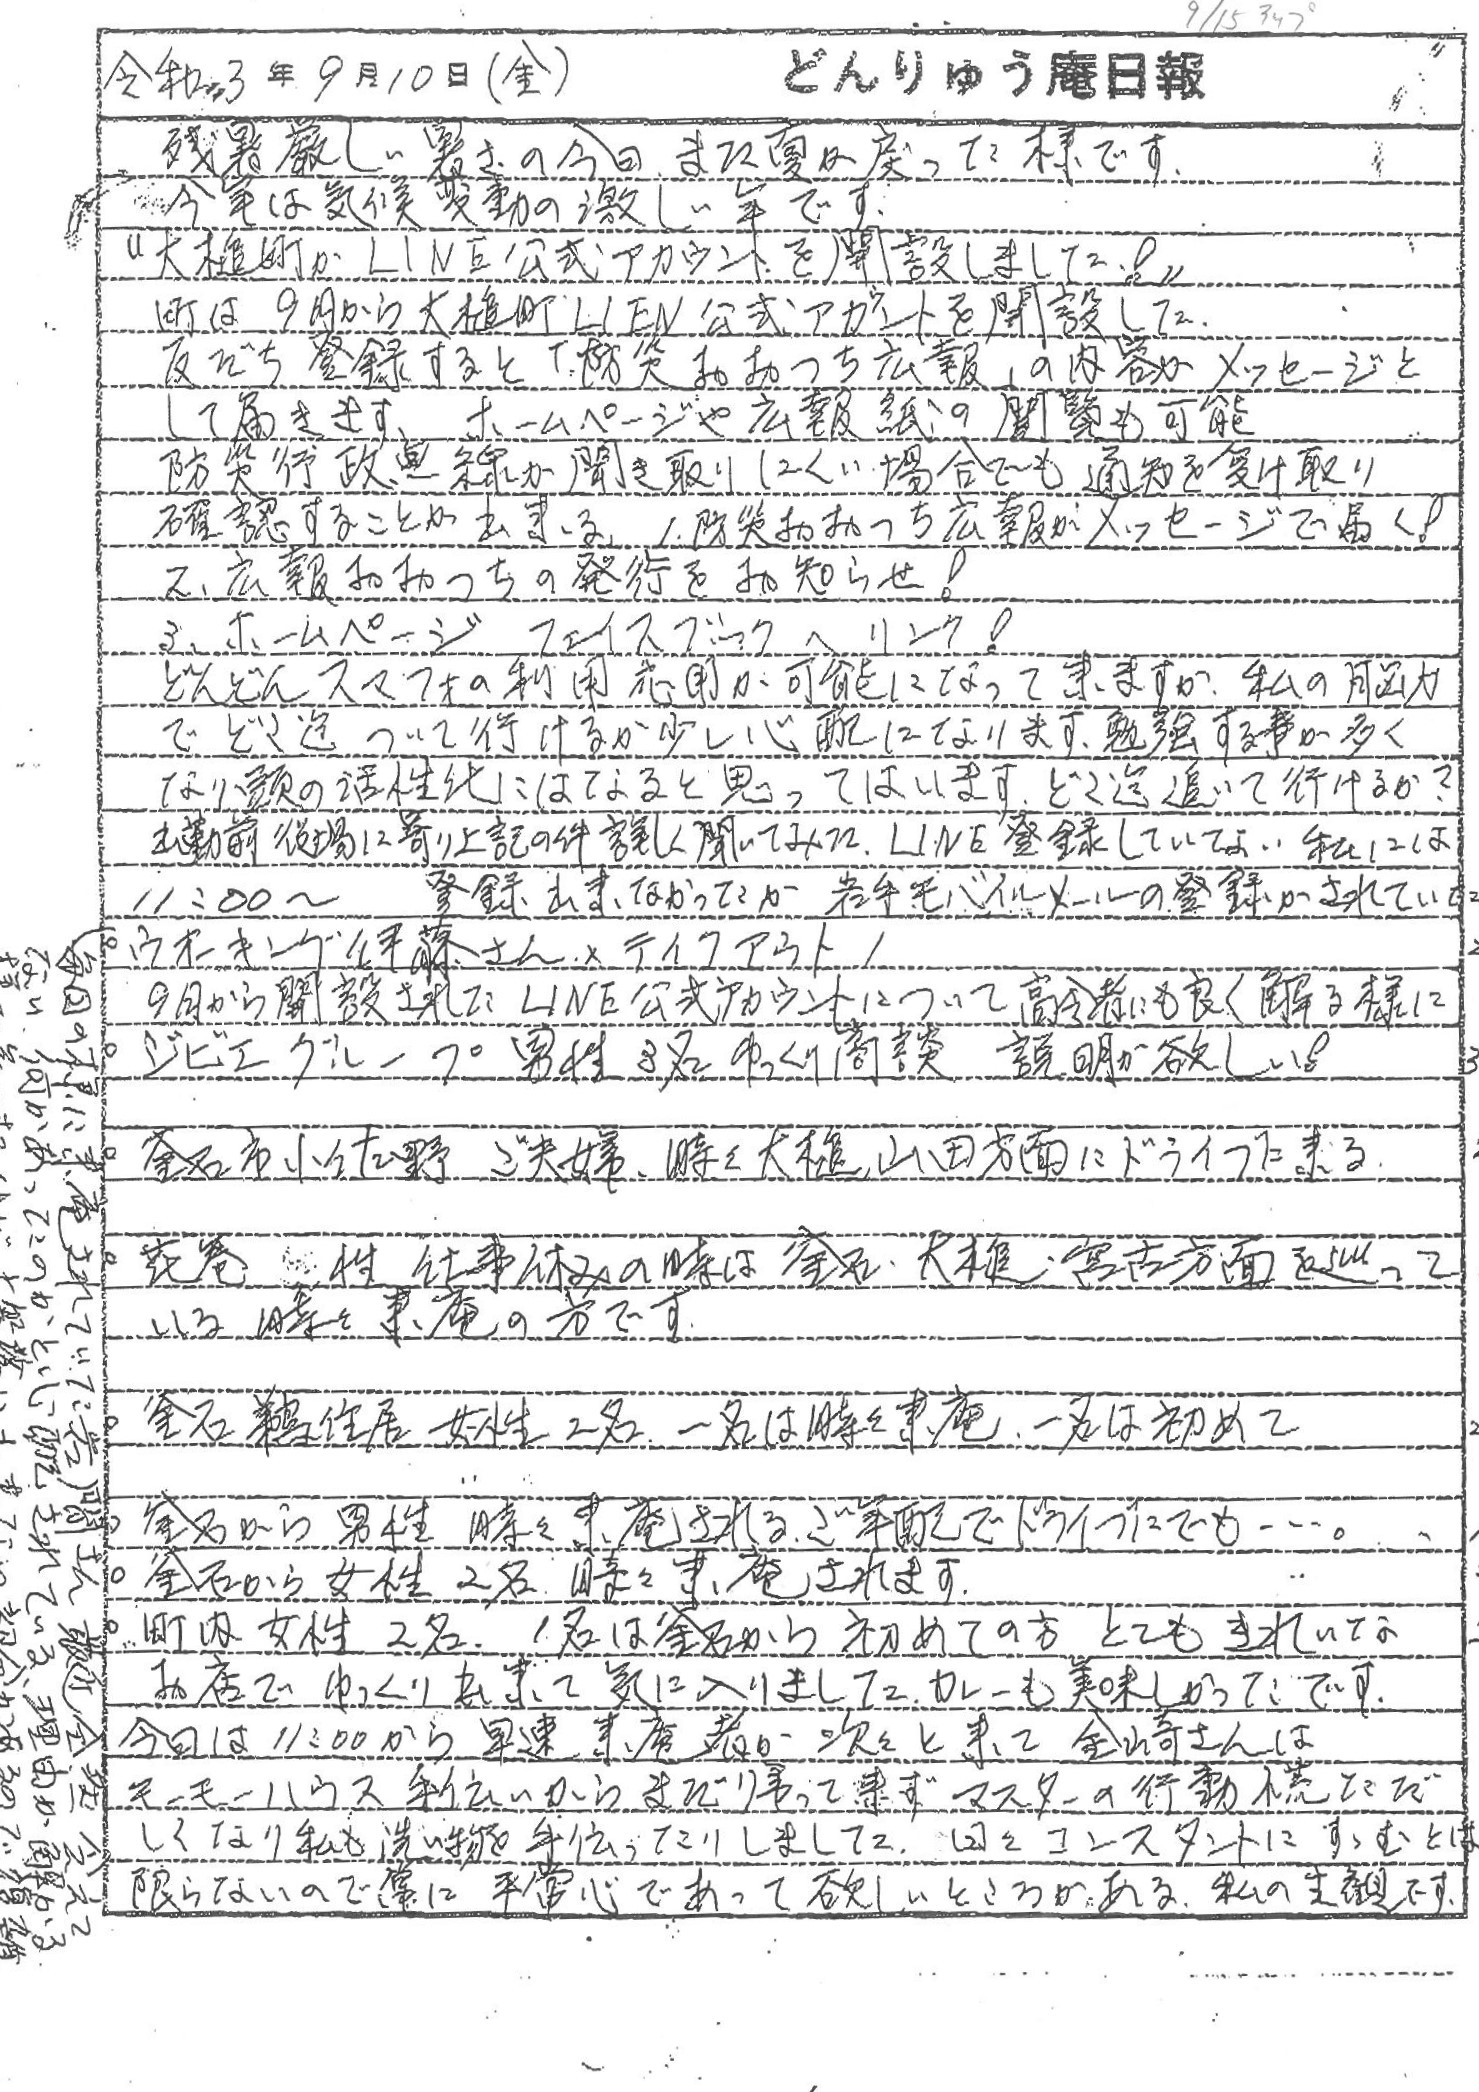 9/15 アップ
令和3年9月10日(金) どんりゅう庵日報
残暑厳しい暑さの今日 また夏が戻った様です.
今年は気候変動の激しい年です.
"大槌町が LINE公式アカウントを開設しました!"
町は 9月から大槌町LIEN公式アカウントを開設した.
友だち登録すると「防災おおつち広報」の内容が メッセージと
して届きます、 ホームページや広報紙の閲覧も可能
防災行政無線が聞き取りにくい場合でも通知を受け取り
確認することが出来る、1.防災おおつち広報がメッセージで届く!
2、広報おおつちの発行をお知らせ!
3、ホームページ フェイスブックへリンク!
どんどんスマフォの利用応用が可能になって来ますが、私の脳力
でどこ迄ついて行けるか少し心配になります、勉強する事が多く
なり、頭の活性化にはなると思ってはいます、どこ迄追いて行けるか?
出勤前役場に寄り上記の件詳しく聞いてみた、LINE登録していない私には
11:00〜 登録出来なかったが 岩手モバイルメールの登録がされていた
ウオーキング伊藤さん、テイクアウト1
9月から開設されたLINE公式アカウントについて高令者にも良く解る様に
ジビエグループ 男性3名 ゆっくり商談 説明が欲しい!
釜石市小佐野 ご夫婦、時々大槌、山田方面にドライブに来る.
花巻 性 仕事休みの時は釜石、大槌、宮古方面を巡って
いる 時々来庵の方です.
釜石鵜住居 女性2名、一名は時々来庵、一名は初めて
釜石から男性 時々来庵される、ご年配でドライブにでも----。
釜石から女性2名、時々来庵されます.
町内女性2名、1名は釜石から初めての方 とてもきれいな
お店で ゆっくり出来て気に入りました、カレーも美味しかったです.
今日は11:00から早速来庵者が次々と来て 金崎さんは
モーモーハウス手伝いからまだ帰って来ず マスターの行動慌ただ
しくなり私も洗い物を手伝ったりしました、日々コンスタントにすすむとは
限らないので常に平常心であって欲しいところがある、私の主観です.
毎日の様に来庵されていた岩間さん最近全然会えて
ない、何かあったのかと心配されている、理由が聞かる